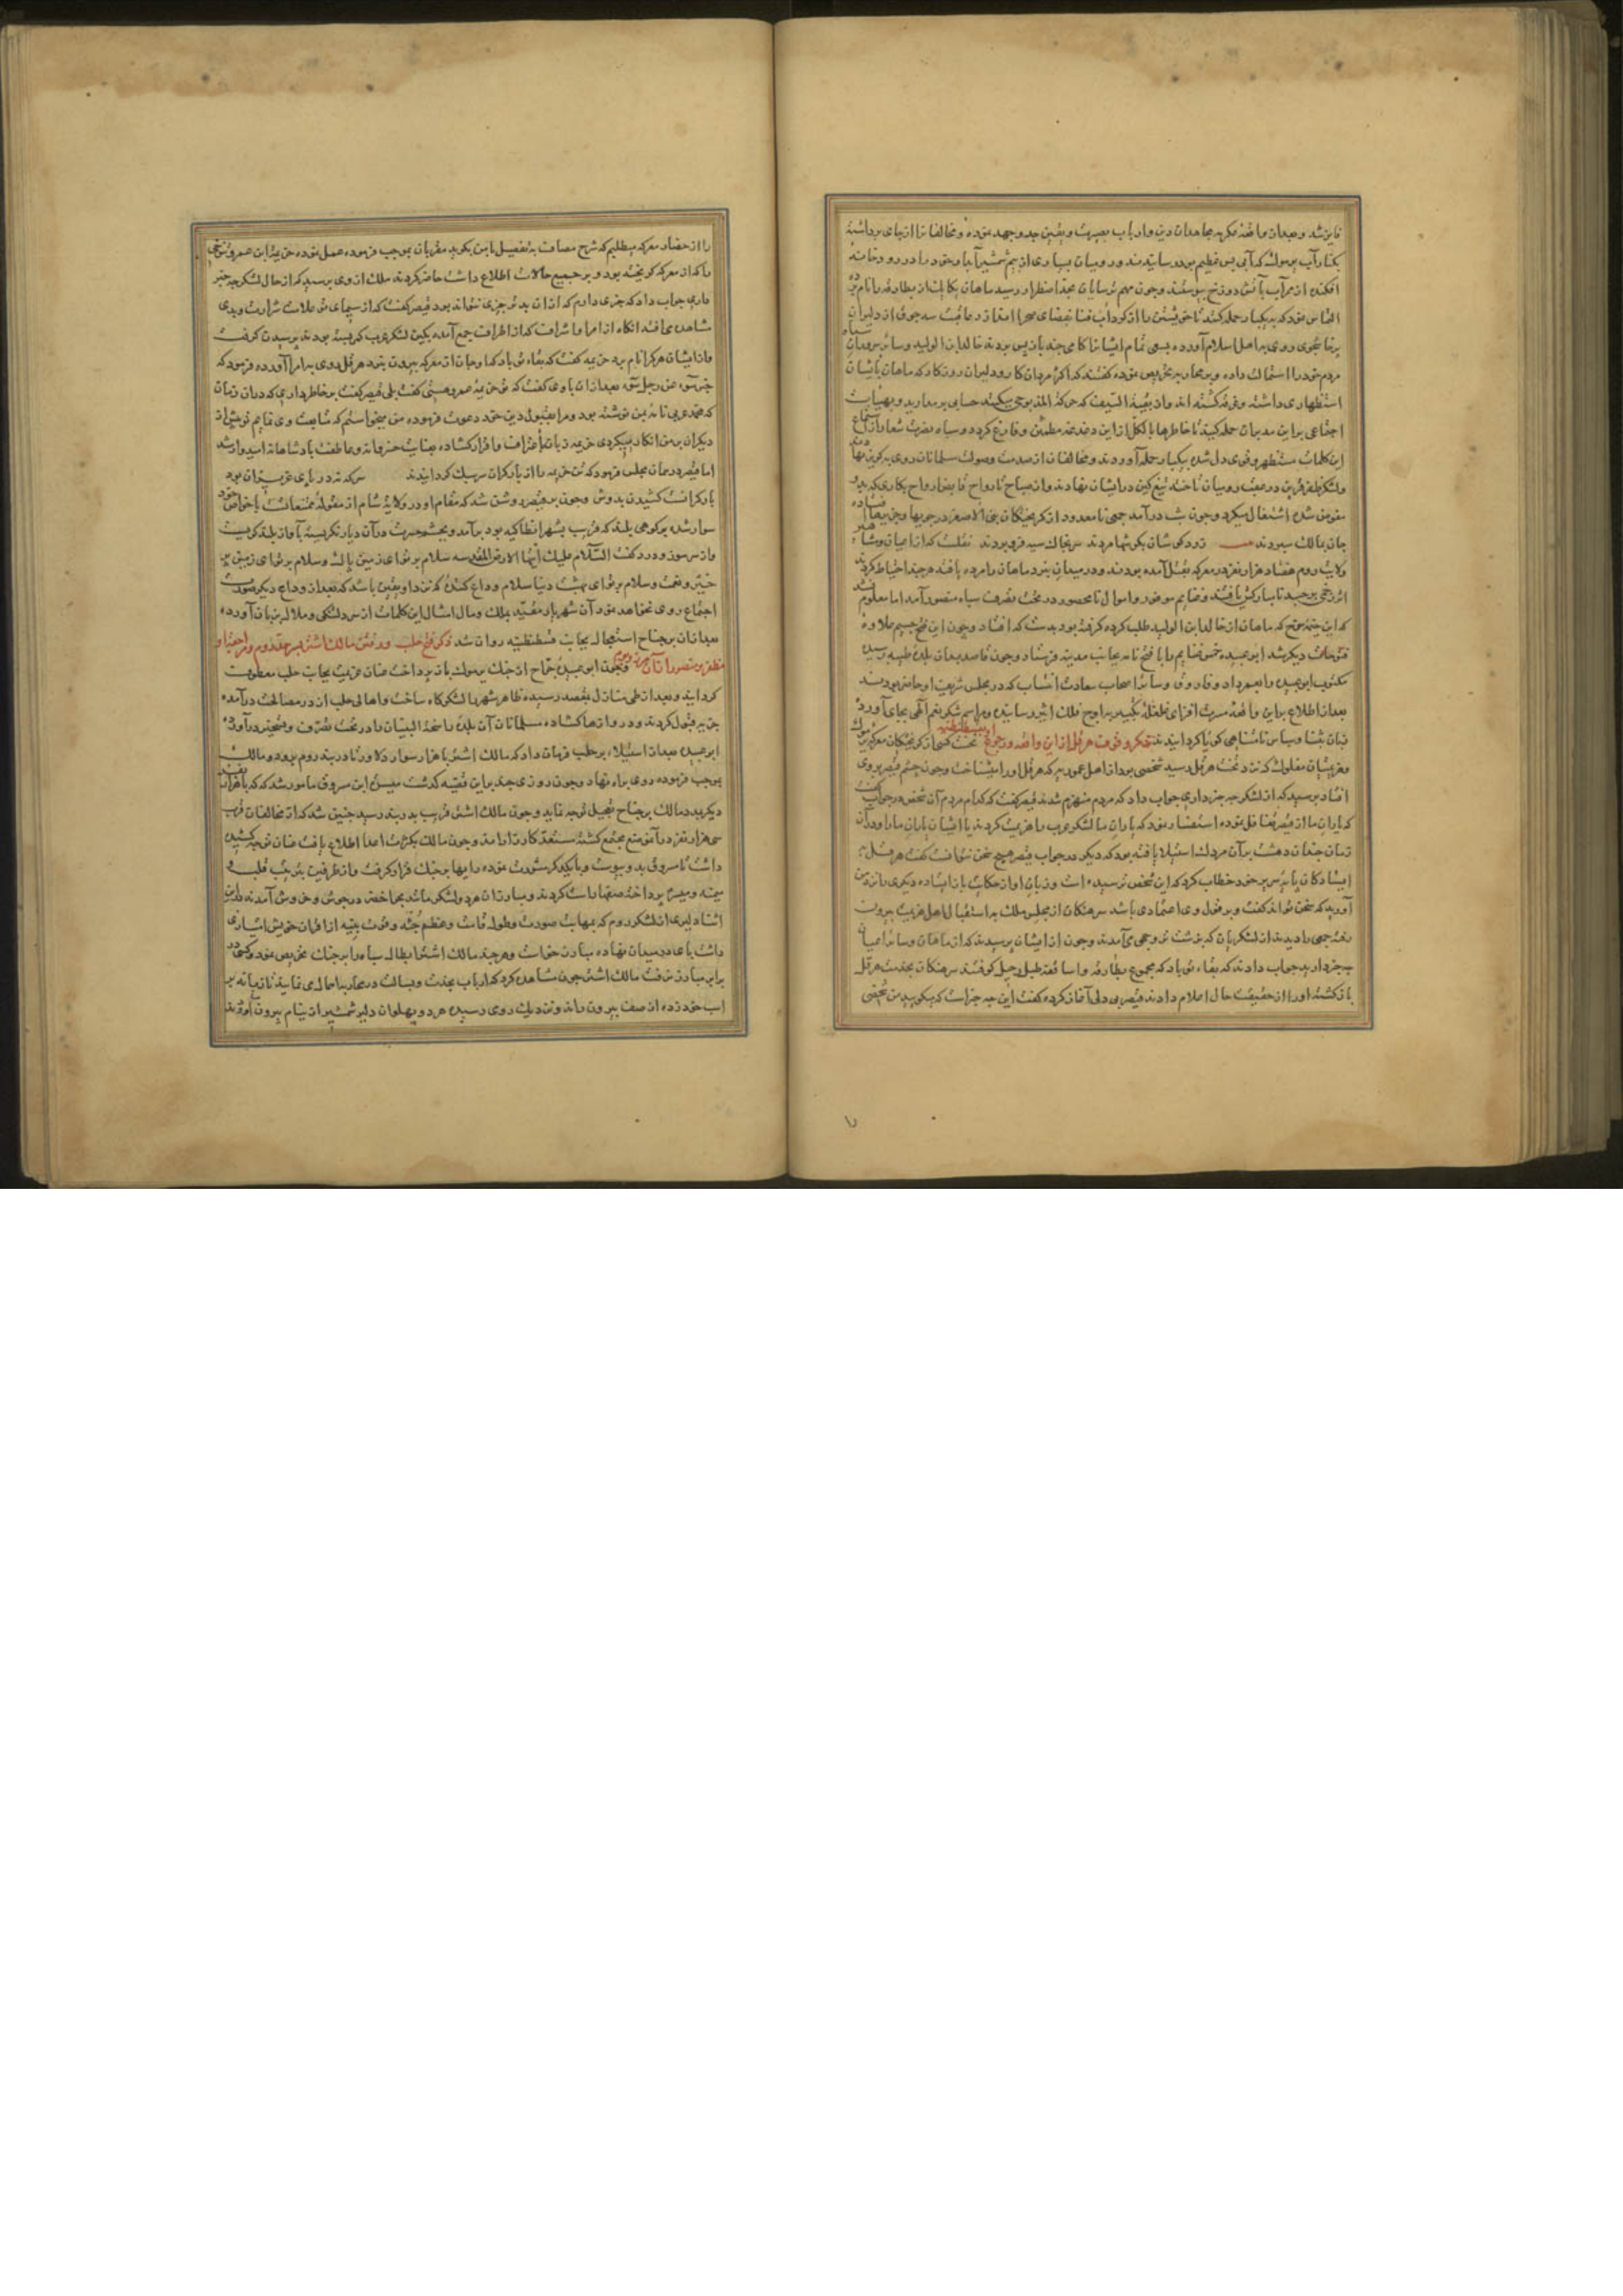 فایز شد و بعد از واقعهٔ مکرر مجاهدان دین و ارباب بصیرت و یقین جد و جهد نموده و مخالفانرا از جای برداشته
بکنار آب یرموک که آبی بس عظیم بود رسانیدند و رومیان بسیاری از بیم شمشیر آبدار خود را در رودخانه
افکنده از میر آب بآتش دوزخ پیوستند و چون مهم ترسایان بحد اضطرار رسید ماهان یکایک از بطارقه را نام برده
التماس نمود که بیکبار حمله کنند تا خویشتن را از گرداب فنا بفضای صحرا اندازد عاقبت سه جوق از دلیران
پرخاشجوی روی باهل اسلام آورده بسعی تمام ایشانرا گامی چند باز پس بردند خالد ابن الولید و سائر سروران سپاه
مردم خود را استمالت داده و بر محاربه تحریص نموده گفتند که اکثر مردان کار و دلیران روزگار که ماهان بایشان
استظهاری داشته و غرقه گشته اند و از بقیة السیف که حرکة المذبوحی میکنند حسابی بر مدارید و بهیأت
اجتماعی براین مدبران حمله کنید تا خاطرها بالکل ازین دغدغه مطمئن و فارغ گردد و سپاه نصرت شعار از استماع
این کلمات مستظهر و قوی دل شده بیکبار حمله آوردند و مخالفان از صدمت و صولت مسلمانان روی بگریز نهادند
و لشکر ظفر قرین در عقب رومیان تاخته تیغ کین در ایشان نهادند و از صباح تا رواح قابض ارواح بکاری که بدو
مفوض شده اشتغال میکرد و چون شب درآمد جمعی نامعدود از گریختگان بنی الاصفر در جویها و چنین بها افتاده
جان بمالک سپردند بیت زود کوی شان بکوشها مردند سر بخاک سیه فرو بردند نقلست که از اعیان و مشاهیر
ولایت روم هفتاد هزار نفر در معرکه بقتل آمده بودند و در میدان نبرد ماهان را مرده یافتند هر چند احتیاط کردند
اثر زخمی بر جسد نا مبارکش نیافتند و غنایم موفور و اموال نامحصور در تحت تصرف سپاه منصور آمد اما معلوم نشد
که این خیمه ماهان از خالد ابن الولید طلب کرده گرفته بود بدست که افتاد و چون این فتح جسیم علاوهٔ
فتوحات دیگر شد ابو عبیده خمس غنایم را با فتح نامه بجانب مدینه فرستاد و چون قاصد بمدینه طیبه رسید
مکتوب ابو عبیده را بعمر داد و فاروق و سائر اصحاب سعادت انتساب که در مجلس شریف او حاضر بودند
بعد از اطلاع براین واقعهٔ مسرت افزای غلغلهٔ تکبیر باوج فلک اثیر رسانیدند و مراسم شکر نعم آلهی بجای آورده
زبان بثنا و سپاس نامتناهی گویا گردانیدند ذکر وقوف هرقل ازین واقعه و رجوع او بقسطنطنیه نخست کسی از گریختگان معرکهٔ یرموک
و هزیمتیان مفلوک که نزد تخت هرقل رسید شخصی بود از اهل عموریه که هرقل او را میشناخت و چون چشم قیصر بر وی
افتاد پرسید که از لشکر چه خبر داری جواب داد که مردم منهزم شدند قیصر گفت که کدام مردم آن شخص در جواب گفت
که یاران ما از قیصر تغافل نموده استفسار نمود که یاران ما لشکر عرب را هزیمت کردند یا ایشان یاران ما را و در آن
زمان چندان دهشت بر آن مردک استیلا یافته بود که دیگر در جواب قیصر هیچ سخن نتوانست گفت هرقل به
ایستادگان پایه سریر خود خطاب کرد که این شخص ترسیده است و زبان او از حکایت باز ایستاده دیگری را نزد من
آورید که سخن تواند گفت و بر قول وی اعتمادی باشد سرهنگان از مجلس ملک باستقبال اهل هزیمت بیرون
رفته جمعی را دیدند از لشکریان که بزشت تر وجهی می آمدند و چون از ایشان پرسیدند که از ماهان و سائر اعیان
چه خبر دارید جواب دادند که بقاء تو باد که مجموع بطارقه و اساقفه طبل رحیل کوفتند سرهنگان بخدمت هرقل
بازگشته او را از حقیقت حال اعلام دادند قیصر بی دلی آغاز کرده گفت این چه خبر است که میگویید من شخصی
را از حضار معرکه میطلبم که شرح مصاف به تفصیل با من بگوید مقربان بموجب فرموده عمل نموده خزیمة ابن عمرو تنوخی
را که از معرکه گریخته بود و بر جمیع حالات اطلاع داشت حاضر کردند ملک از وی پرسید که از حال لشکر چه خبر
داری جواب داد که خبری دارم که از آن بدتر خبری نتواند بود قیصر گفت که از سیمای تو علامت شرارت و بدی
مشاهده می افتد آنگاه از امرا و اشراف که از اطراف جمع آمده بکین لشکر عرب کمر بسته بودند پرسیدن گرفت
و از ایشان هر کرا نام برد خزیمه گفت که بقاء تو باد که او جان از معرکه بیرون نبرد هرقل روی بامرا آورده فرمود که
خبر سوء عن رجل سوء بعد از آن با وی گفت که تو خزیمه عمرو هستی گفت بلی قیصر گفت بر خاطر داری که در آن زمان
که محمد عربی نامه بمن نوشته بود و مرا بقبول دین خود دعوت فرموده من میخواستم که متابعت وی نمایم تو پیش از
دیگران بر من انکار میکردی خزیمه زبان باعتراف و اقرار گشاده بعنایت خسروانه و عاطفت پادشاهانه امیدوار شد
اما قیصر در همان مجلس فرمود که تن خزیمه را از بار گران سر سبک گردانیدند سر که نه در پای عزیزان بود
بار گرانست کشیدن بدوش و چون بر قیصر روشن شد که مقام او در ولایت شام از مقولهٔ ممتنعاتست با خواص خود
سوار شده بر کوهی بلند که قریب بشهر انطاکیه بود برآمد و بچشم حسرت در آن دیار نگریسته بآواز بلند گریست
و از سر سوز و درد گفت السلام علیک ایتها الارض المقدسه سلام بر تو ای زمین پاک و سلام بر تو ای زمین پر
خیر و نعمت و سلام بر تو ای بهشت دنیا سلام وداع کنندهٔ که نزد او یقین باشد که بعد از وداع دیگر صورت
اجتماع روی نخواهد نمود آن شهریار مقید بملک و مال امثال این کلمات از سر دلتنگی و ملال بر زبان آورده
بعد از آن بر جناح استعجال بجانب قسطنطنیه روان شد ذکر فتح حلب و رفتن مالک اشتر بسرحد روم و مراجعت او
مظفر و منصور از آن مرز و بوم و چون ابو عبیدهٔ جراح از جنگ یرموک باز پرداخت عنان عزیمت بجانب حلب معطوف
گردانید و بعد از طی منازل بمقصد رسیده ظاهر شهر را لشکرگاه ساخت و اهالی حلب از در مصالحت درآمده
جزیه قبول کردند و دروازها گشاده مسلمانان آن بلدهٔ راسخة البنیان را در تحت تصرف و تسخیر درآوردند
ابو عبیده بعد از استیلاء بر حلب فرمان داد که مالک اشتر با هزار سوار دلاور تا دربند روم برود و مالک
بموجب فرموده روی براه نهاد و چون روزی چند براین قضیه گذشت میسرة ابن مسروق مامور شد که با هزار نفر
دیگر بمدد مالک بر جناح تعجیل توجه نماید و چون مالک اشتر قریب بدربند رسید چنین شد که از مخالفان قرب
سی هزار نفر در آن موضع مجتمع گشته مستعد کارزارند و چون مالک بکثرت اعدا اطلاع یافت عنان توجه کشیده
داشت تا مسروق بدو پیوست و با یکدیگر مشورت نموده رایها بر جنگ قرار گرفت و از طرفین بترتیب قلب و
میمنه و میسره پرداخته صفها راست کردند و مبارزان هر دو لشکر مانند بحار اخضر در جوش و خروش آمدند در این
اثنا دلیری از لشکر روم که بمهابت صورت و طول قامت و عظم جثه و قوت بنیه از اقران خویش امتیازی
داشت پای در میدان نهاده مبارز خواست و هر چند مالک اشتر ابطال سپاه را بر جنگ تحریص نمود کسی در
برابر مبارز نرفت مالک اشتر چون مشاهده کرد که ارباب نجدت و بسالت در محاربه اهمال می نمایند تازیانه بر
اسب خود زده از صف بیرون راند و نزدیک رومی رسیده هر دو پهلوان دلیر شمشیر از نیام بیرون آوردند